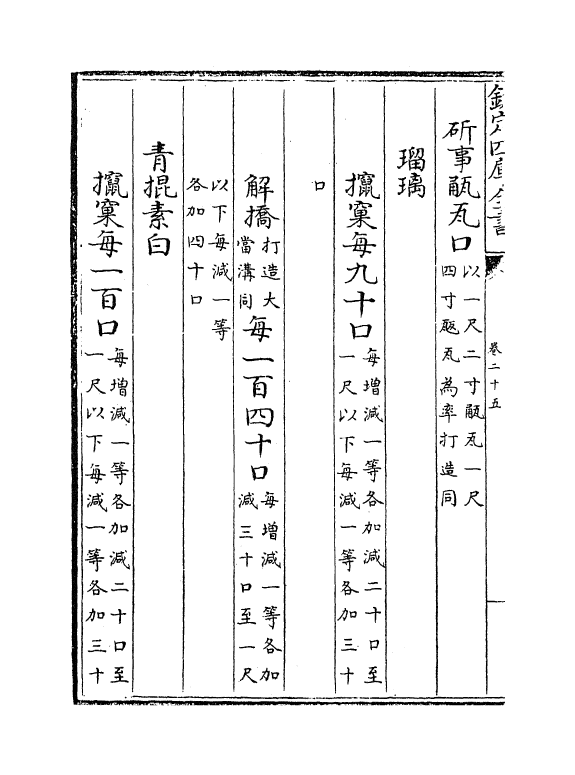 欽定四庫全書
卷二十五
斫事甋瓦口以一尺二寸甋瓦一尺四寸瓪瓦為率打造同
瑠璃
攛窠每九十口每增減一等各加減二十口至一尺以下每減一等各加三十
口
解撟打造大當溝同每一百四十口每增減一等各加減三十口至一尺
以下每減一等各加四十口
青掍素白
攛窠每一百口每增減一等各加減二十口至一尺以下每減一等各加三十